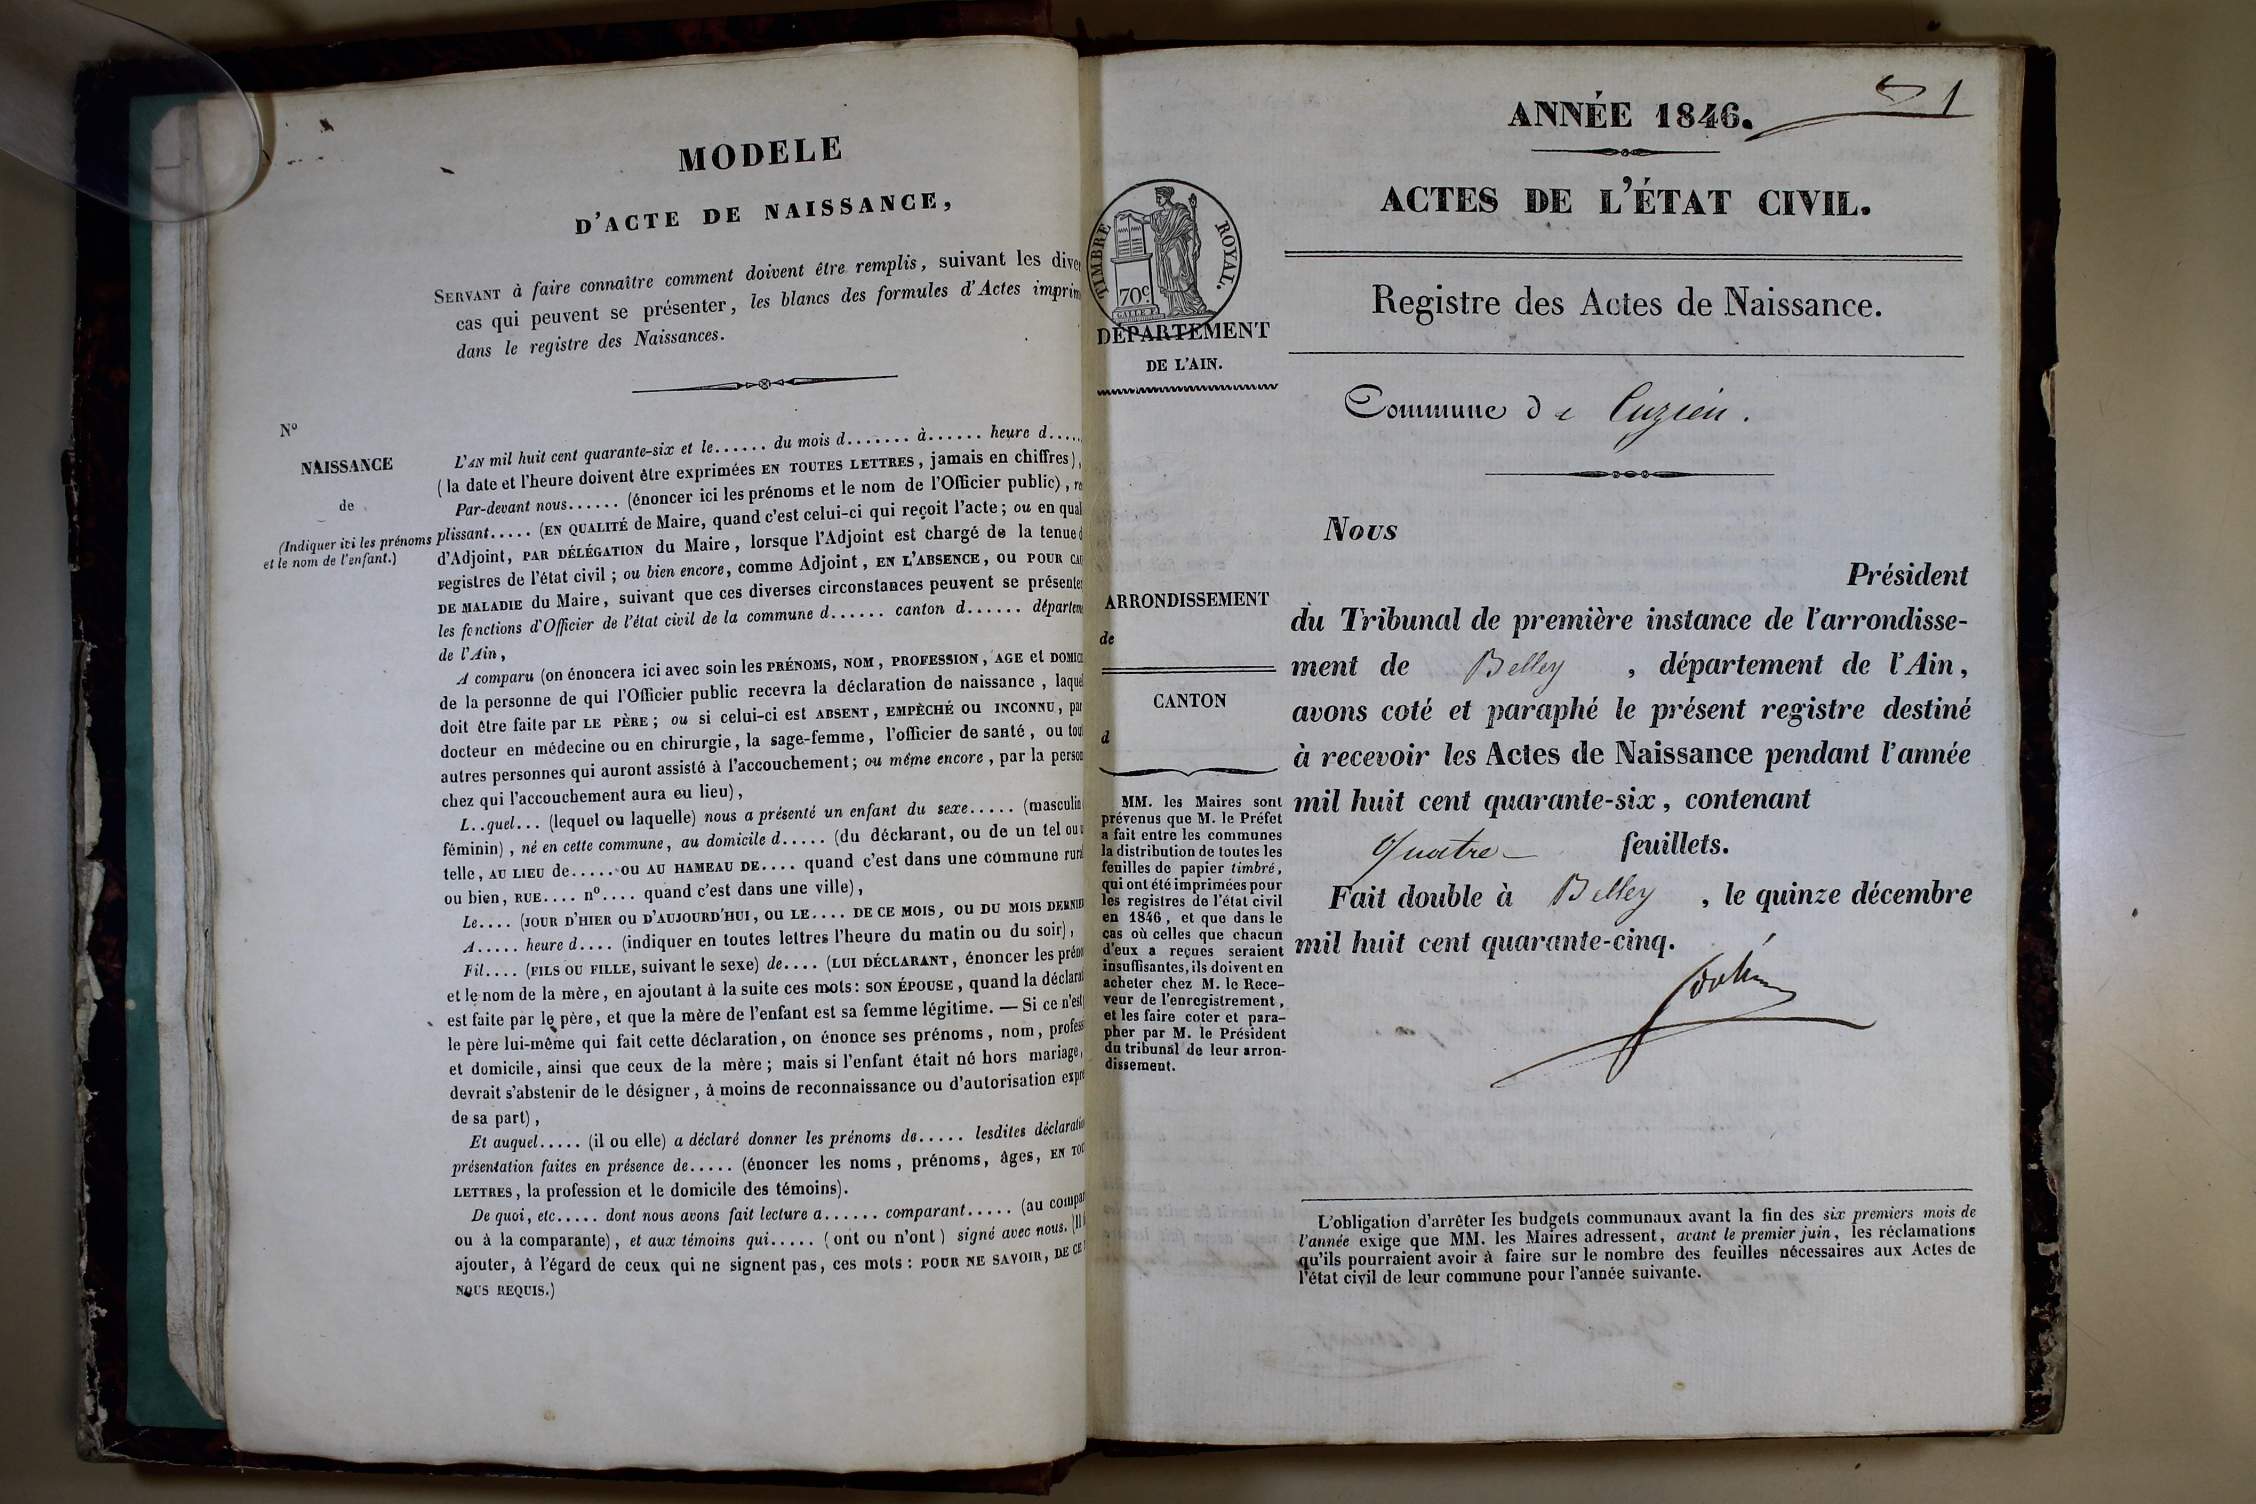 MODELE
D'ACTE DE NAISSANCE,
SERVANT à faire connaître comment doivent être remplis, suivant les dive
cas qui peuvent se présenter, les blancs des formules d'Actes imprim
dans le registre des Naissances.
N°
NAISSANCE
de
(Indiquer ici les prénoms
et le nom de l'enfant.)
L'AN mil huit cent quarante-six et le...... du mois d....... à...... heure d.....
(la date et l'heure doivent être exprimées EN TOUTES LETTRES, jamais en chiffres),
Par-devant nous...... (énoncer ici les prénoms et le nom de l'Officier public), re
plissant..... (EN QUALITÉ de Maire, quand c'est celui-ci qui reçoit l'acte; ou en qual
d'Adjoint, PAR DÉLÉGATION du Maire, lorsque l'Adjoint est chargé de la tenue d
registres de l'état civil; ou bien encore, comme Adjoint, EN L'ABSENCE, OU POUR CAU
DE MALADIE du Maire, suivant que ces diverses circonstances peuvent se présenter
les fonctions d'Officier de l'état civil de la commune d...... canton d...... départeme
de l'Ain,
A comparu (on énoncera ici avec soin les PRÉNOMS, NOM, PROFESSION, AGE et DOMICI
de la personne de qui l'Officier public recevra la déclaration de naissance, laquel
doit être faite par LE PÈRE; ou si celui-ci est ABSENT, EMPÊCHÉ OU INCONNU, par
docteur en médecine ou en chirurgie, la sage-femme, l'officier de santé, ou tout
autres personnes qui auront assisté à l'accouchement; ou même encore, par la person
chez qui l'accouchement aura eu lieu),
L..quel... (lequel ou laquelle) nous a présenté un enfant du sexe..... (masculin
féminin), né en cette commune, au domicile d..... (du déclarant, ou de un tel ou u
telle, AU LIEU de..... ou AU HAMEAU DE.... quand c'est dans une commune rura
ou bien, RUE.... n°.... quand c'est dans une ville),
Le.... (JOUR D'HIER OU D'AUJOURD'HUI, OU LE.... DE CE MOIS, OU DU MOIS DERNIER
A..... heure d.... (indiquer en toutes lettres l'heure du matin ou du soir),
Fil.... (FILS OU FILLE, suivant le sexe) de.... (LUI DÉCLARANT, énoncer les préno
et le nom de la mère, en ajoutant à la suite ces mots: SON ÉPOUSE, quand la déclarat
est faite par le père, et que la mère de l'enfant est sa femme légitime. — Si ce n'est
le père lui-même qui fait cette déclaration, on énonce ses prénoms, nom, profess
et domicile, ainsi que ceux de la mère; mais si l'enfant était né hors mariage,
devrait s'abstenir de le désigner, à moins de reconnaissance ou d'autorisation expre
de sa part),
Et auquel..... (il ou elle) a déclaré donner les prénoms de..... lesdites déclaratio
présentation faites en présence de..... (énoncer les noms, prénoms, âges, EN TOU
LETTRES, la profession et le domicile des témoins).
De quoi, etc..... dont nous avons fait lecture a...... comparant..... (au compar
ou à la comparante), et aux témoins qui..... (ont ou n'ont) signé avec nous. (Il
ajouter, à l'égard de ceux qui ne signent pas, ces mots: POUR NE SAVOIR, DE CE
NOUS REQUIS.)
1
ANNÉE 1846.
ACTES DE L'ÉTAT CIVIL.
Registre des Actes de Naissance.
TIMBRE ROYAL.
70c.
DÉPARTEMENT
DE L'AIN.
Commune de Cuzieu.
ARRONDISSEMENT
de
CANTON
d
MM. les Maires sont
prévenus que M. le Préfet
a fait entre les communes
la distribution de toutes les
feuilles de papier timbré,
qui ont été imprimées pour
les registres de l'état civil
en 1846, et que dans le
cas où celles que chacun
d'eux a reçues seraient
insuffisantes, ils doivent en
acheter chez M. le Rece-
veur de l'enregistrement,
et les faire coter et para-
pher par M. le Président
du tribunal de leur arron-
dissement.
Nous
Président
du Tribunal de première instance de l'arrondisse-
ment de Belley, département de l'Ain,
avons coté et paraphé le présent registre destiné
à recevoir les Actes de Naissance pendant l'année
mil huit cent quarante-six, contenant
Quatre feuillets.
Fait double à Belley, le quinze décembre
mil huit cent quarante-cinq.
L'obligation d'arrêter les budgets communaux avant la fin des six premiers mois de
l'année exige que MM. les Maires adressent, avant le premier juin, les réclamations
qu'ils pourraient avoir à faire sur le nombre des feuilles nécessaires aux Actes de
l'état civil de leur commune pour l'année suivante.